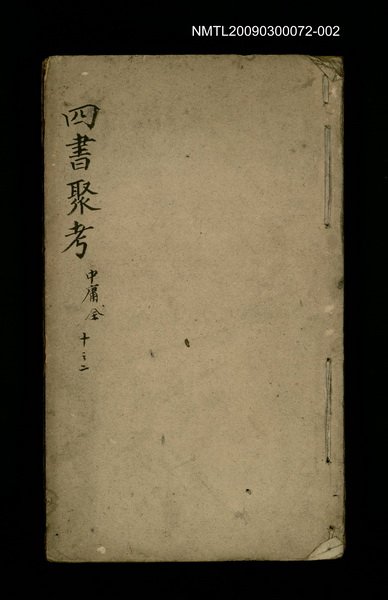 NMTL20090300072-002
四書聚考
中庸全
十之二